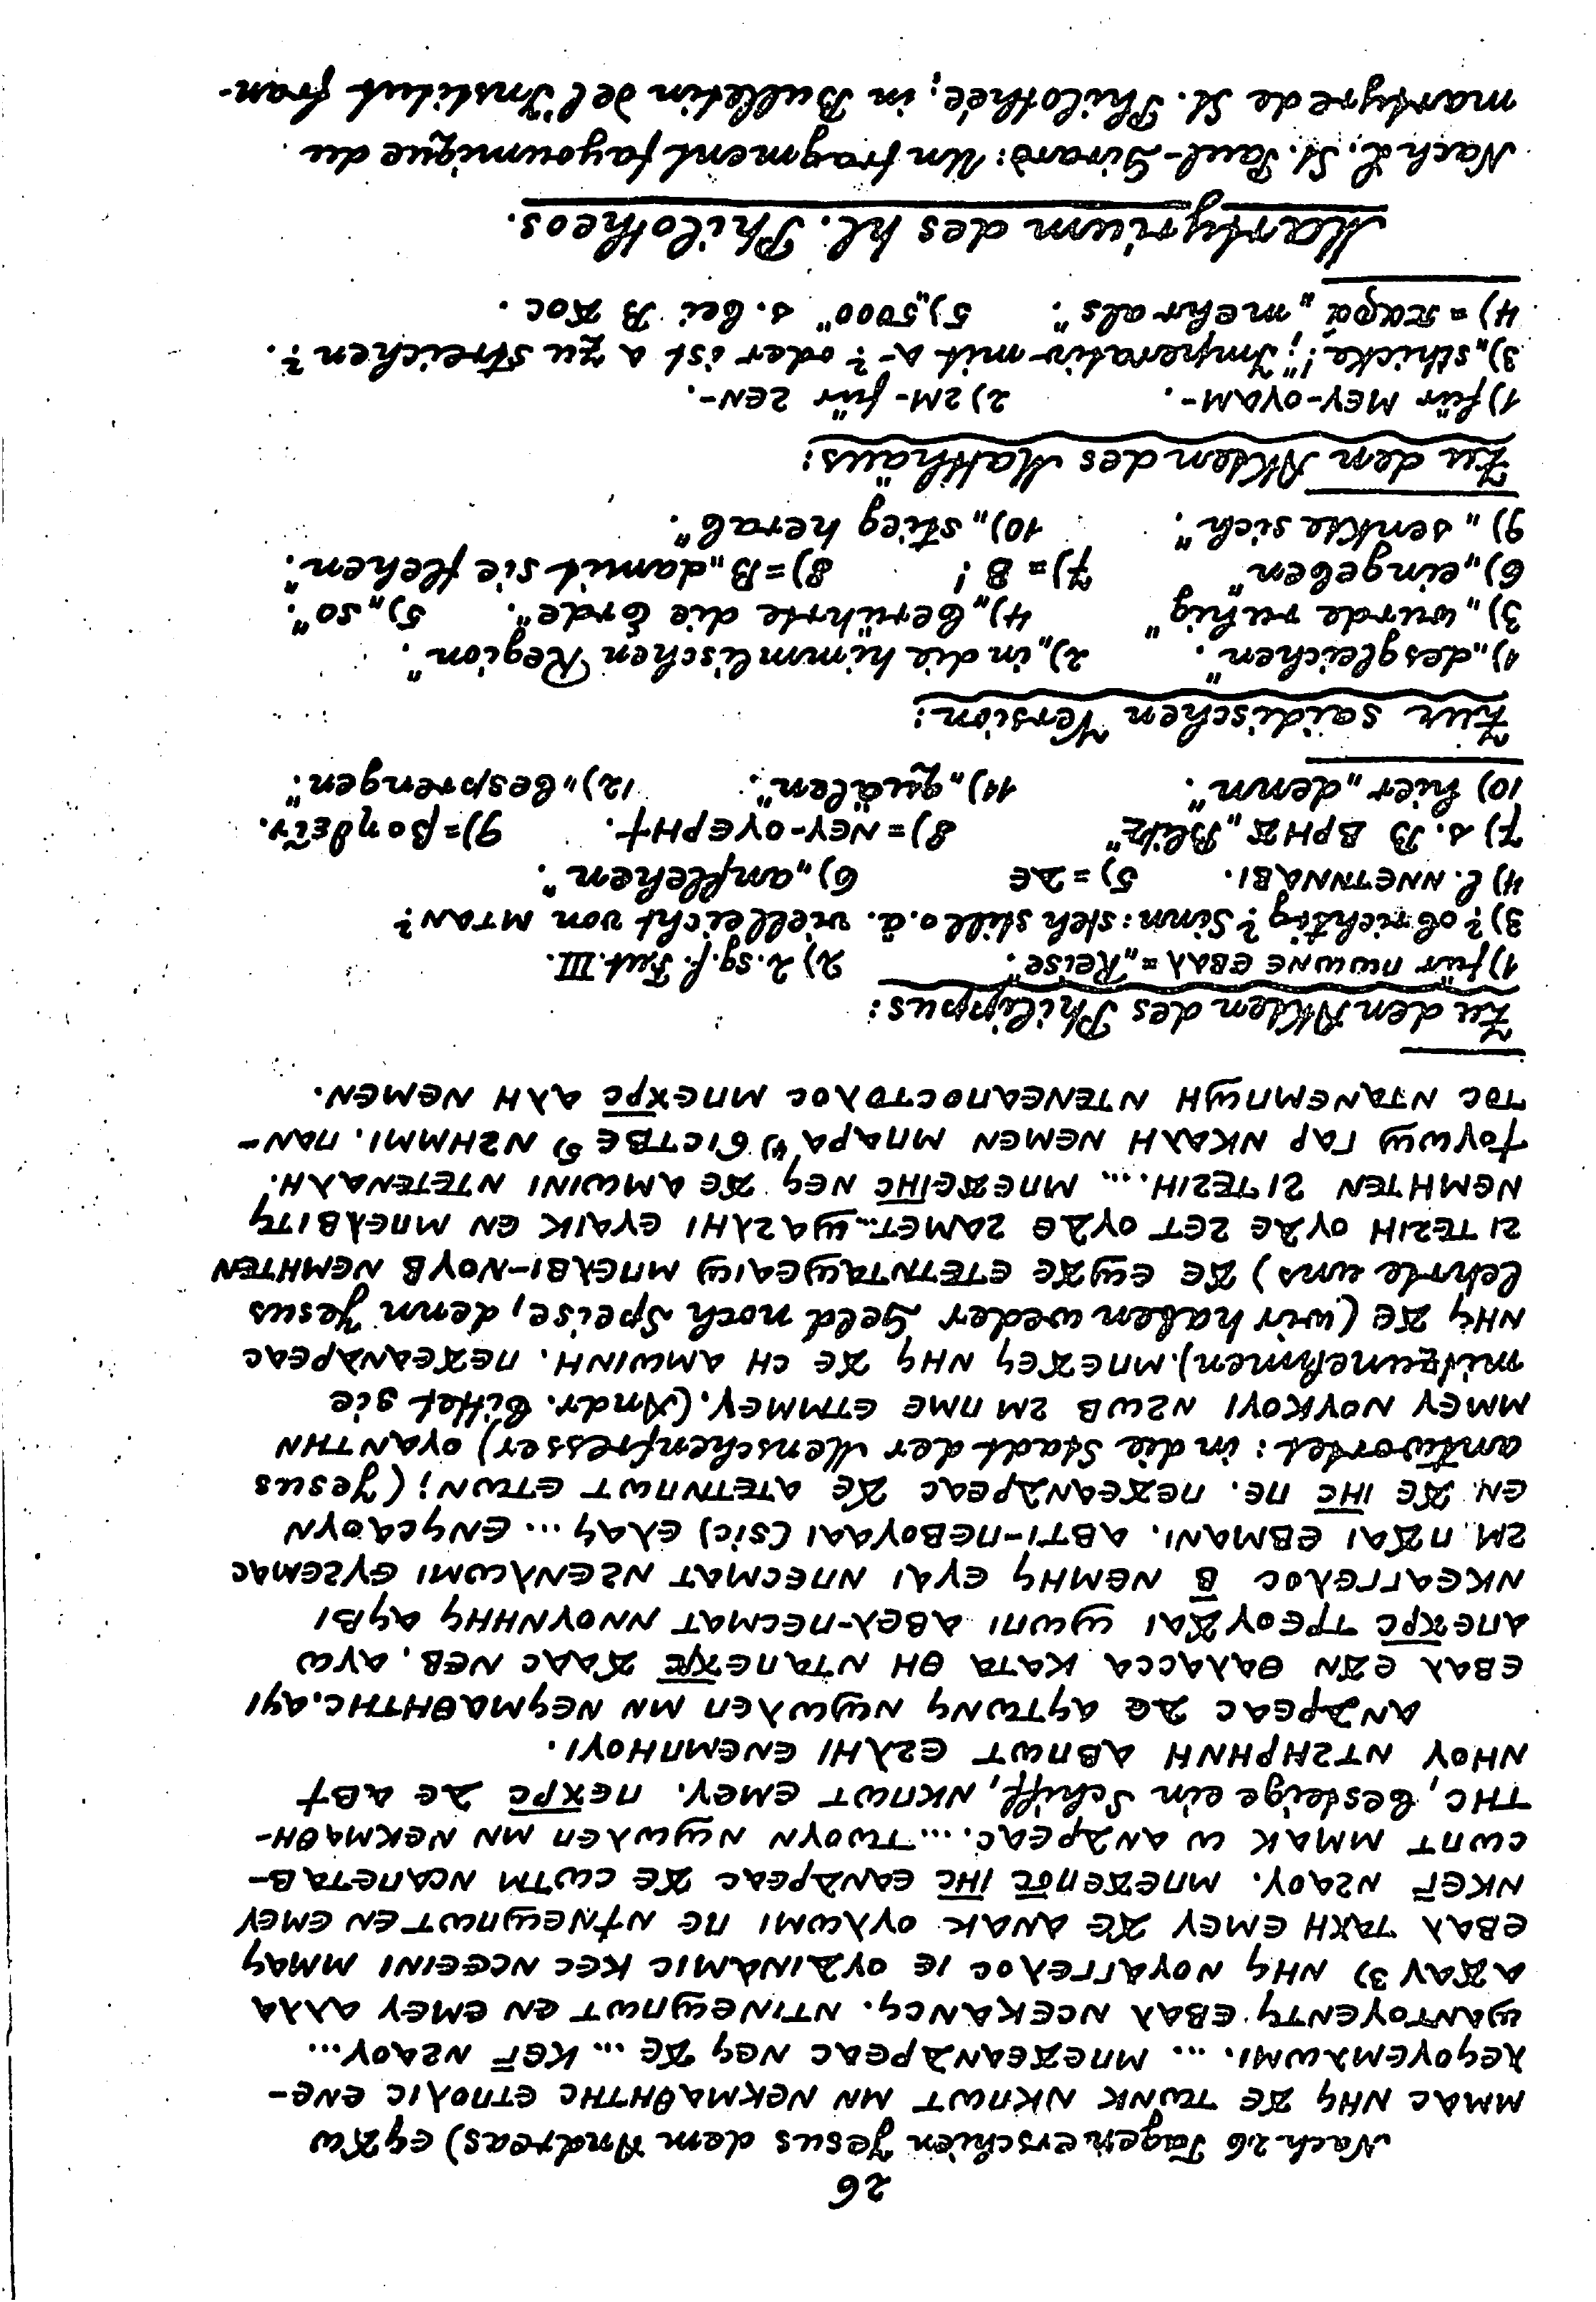 26
Nach 26 Tagen erschien Jesus dem Andreas) ⲉϥϫⲱ
ⲙⲙⲁⲥ ⲛⲏϥ ϫⲉ ⲧⲱⲛⲕ ⲛⲕⲡⲱⲧ ⲙⲛ ⲛⲉⲕⲙⲁⲑⲏⲧⲏⲥ ⲉⲧⲡⲟⲗⲓⲥ ⲉⲛⲉ-
ⲗⲉϥⲟⲩⲉⲙⲗⲱⲙⲓ. ... ⲙⲡⲉϫⲉⲁⲛⲇⲣⲉⲁⲥ ⲛⲉϥ ϫⲉ ... ⲕⲉⲅ̅ ⲛϩⲁⲟⲩ...
ϣⲁⲛⲧⲟⲩⲉⲛⲧϥ ⲉⲃⲁⲗ ⲛⲥⲉⲕⲁⲛⲥϥ. ⲛⲧⲓⲛⲉϣⲡⲱⲧ ⲉⲛ ⲉⲙⲉⲩ ⲁⲗⲗⲁ
ⲁϫⲁⲩ 3) ⲛⲏϥ ⲛⲟⲩⲁⲅⲅⲉⲗⲟⲥ ⲓⲉ ⲟⲩⲇⲓⲛⲁⲙⲓⲥ ⲕⲉⲥ ⲛⲥⲉⲉⲓⲛⲓ ⲙⲙⲁϥ
ⲉⲃⲁⲗ ⲧⲁⲭⲏ ⲉⲙⲉⲩ ϫⲉ ⲁⲛⲁⲕ ⲟⲩⲗⲱⲙⲓ ⲡⲉ ⲛϯⲛⲉϣⲡⲱⲧ ⲉⲛ ⲉⲙⲉⲩ
ⲛⲕⲉⲅ̅ ⲛϩⲁⲟⲩ. ⲙⲡⲉϫⲉⲡⲟ̅ⲥ̅ ⲓⲏ̅ⲥ̅ ⲉⲁⲛⲇⲣⲉⲁⲥ ϫⲉ ⲥⲱⲧⲙ ⲛⲥⲁⲡⲉⲧⲁⲃ-
ⲥⲱⲡⲧ ⲙⲙⲁⲕ ⲱ ⲁⲛⲇⲣⲉⲁⲥ. ... ⲧⲱⲟⲩⲛ ⲛϣⲱⲗⲉⲡ ⲙⲛ ⲛⲉⲕⲙⲁⲑⲏ-
ⲧⲏⲥ, besteige ein Schiff, ⲛⲕⲡⲱⲧ ⲉⲙⲉⲩ. ⲡⲉⲭⲣ̅ⲥ̅ ⲇⲉ ⲁⲃϯ
ⲛⲏⲟⲩ ⲛⲧϩⲏⲣⲏⲛⲏ ⲁⲃⲡⲱⲧ ⲉϩⲗⲏⲓ ⲉⲛⲉⲙⲡⲏⲟⲩⲓ.
ⲁⲛⲇⲣⲉⲁⲥ ⲇⲉ ⲁϥⲧⲱⲛϥ ⲛϣⲱⲗⲉⲡ ⲙⲛ ⲛⲉϥⲙⲁⲑⲏⲧⲏⲥ. ⲁϥⲓ
ⲉⲃⲁⲗ ⲉϫⲛ ⲑⲁⲗⲁⲥⲥⲁ ⲕⲁⲧⲁ ⲑⲏ ⲛⲧⲁⲡⲉⲭ̅ⲥ̅ ϫⲁⲁⲥ ⲛⲉⲃ. ⲁⲩⲱ
ⲁⲡⲉⲭⲣ̅ⲥ̅ ⲧⲣⲉⲟⲩϫⲁⲓ ϣⲱⲡⲓ ⲁⲃⲉⲗ-ⲡⲉⲥⲙⲁⲧ ⲛⲛⲟⲩⲛⲏⲏϥ ⲁϥⲃⲓ
ⲛⲕⲉⲁⲅⲅⲉⲗⲟⲥ ⲃ̅ ⲛⲉⲙⲏϥ ⲉⲩⲁⲓ ⲛⲡⲉⲥⲙⲁⲧ ⲛϩⲉⲛⲗⲱⲙⲓ ⲉⲩϩⲉⲙⲁⲥ
ϩⲙ ⲡϫⲁⲓ ⲉⲃⲙⲁⲛⲓ. ⲁⲃⲧⲓ-ⲡⲉⲃⲟⲩⲁⲁⲓ (sic) ⲉⲗⲁϥ ... ⲉⲛϥⲥⲁⲟⲩⲛ
ⲉⲛ ϫⲉ ⲓⲏ̅ⲥ̅ ⲡⲉ. ⲡⲉϫⲉⲁⲛⲇⲣⲉⲁⲥ ϫⲉ ⲁⲧⲉⲧⲛⲡⲱⲧ ⲉⲧⲱⲛ; (Jesus
antwortet: in die Stadt der Menschenfresser) ⲟⲩⲁⲛⲧⲏⲛ
ⲙⲙⲉⲩ ⲛⲟⲩⲕⲟⲩⲓ ⲛϩⲱⲃ ϩⲙ ⲡⲙⲉ ⲉⲧⲙⲙⲉⲩ. (Andr. bittet sie
mitzunehmen). ⲙⲡⲉϫⲉϥ ⲛⲏϥ ϫⲉ ⲥⲏ ⲁⲙⲱⲓⲛⲏ. ⲡⲉϫⲉⲁⲛⲇⲣⲉⲁⲥ
ⲛⲏϥ ϫⲉ (wir haben weder Geld noch Speise, denn Jesus
lehrte uns) ϫⲉ ⲉϣϫⲉ ⲉⲧⲉⲧⲛⲧⲁϣⲉⲁⲓϣ ⲙⲡⲉⲗⲃⲓ-ⲛⲟⲩⲃ ⲛⲉⲙⲏⲧⲉⲛ
ϩⲓ ⲧⲉϩⲓⲏ ⲟⲩⲇⲉ ϩⲉⲧ ⲟⲩⲇⲉ ϩⲁⲙⲉⲧ... ϣⲁϩⲗⲏⲓ ⲉⲩⲁⲓⲕ ⲉⲛ ⲙⲡⲉⲗⲃⲓⲧϥ
ⲛⲉⲙⲏⲧⲉⲛ ϩⲓⲧⲉϩⲓⲏ. ... ⲙⲡⲉϫⲉⲓⲏ̅ⲥ̅ ⲛⲉϥ ϫⲉ ⲁⲙⲱⲓⲛⲓ ⲛⲧⲉⲧⲉⲛⲁⲗⲏ.
ϯⲟⲩⲱϣ ⲅⲁⲣ ⲛⲕⲁⲗⲏ ⲛⲉⲙⲉⲛ ⲙⲡⲁⲣⲁ 4) ϭⲓⲥⲧⲃⲉ 5) ⲛϩⲏⲙⲙⲓ. ⲡⲁⲛ-
ⲧⲟⲥ ⲛⲧⲁⲛⲉⲙⲡϣⲏ ⲛⲧⲉⲛⲉⲁⲡⲟⲥⲧⲟⲗⲟⲥ ⲙⲡⲉⲭⲣ̅ⲥ̅ ⲁⲗⲏ ⲛⲉⲙⲉⲛ.
Zu den Akten des Philippus:
1) für ⲡⲱⲱⲛⲉ ⲉⲃⲁⲗ = „Reise“. 2) 2. sg. f. Fut. III.
3) ? ob richtig? Sinn: steh still o.ä. vielleicht von ⲙⲧⲁⲛ?
4) l. ⲛⲛⲉⲧⲛⲛⲁⲃⲓ. 5) = ⲇⲉ 6) „anflehen“.
7) s. B ⲃⲣⲏϫ „Blitz“ 8) = ⲛⲉⲩ-ⲟⲩⲉⲣⲏϯ. 9) = βοηθεῖν.
10) hier „denn“. 11) „quälen“. 12) „besprengen“.
Zur saidischen Version:
1) „desgleichen“. 2) „in die himmlischen Region“.
3) „wurde ruhig“ 4) „berührte die Erde“. 5) „so“.
6) „eingeben“ 7) = B! 8) = B „damit sie flehen“.
9) „senkte sich“. 10) „stieg herab“.
Zu den Akten des Matthäus:
1) für ⲙⲉⲩ-ⲟⲩⲁⲙ-. 2) ϩⲙ- für ϩⲉⲛ-.
3) „schicke!“; Imperativ mit ⲁ-? oder ist ⲁ zu streichen?.
4) = παρά „mehr als“. 5) „5000“ s. bei B ϫⲟⲥ.
Martyrium des hl. Philotheos.
Nach L. St. Paul-Girard: Un fragment fayoumique du
martyre de St. Philothée; in: Bulletin de l'Institut fran-